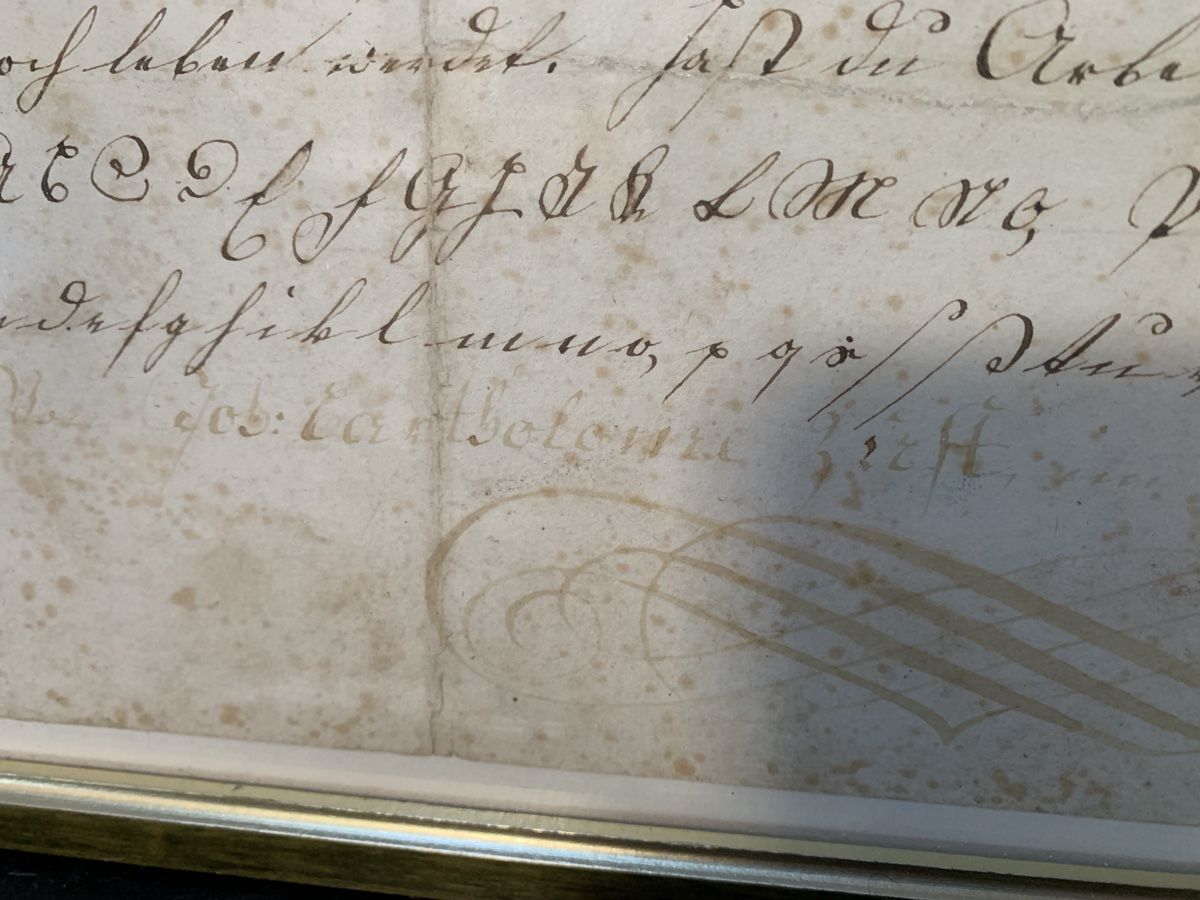 och leben werdet. hast du Arbe
A B C D E F G H J K L M N O, P
d e f g h i k l m n o, p q r s ſ ß t u v
Von Joh: Bartholome